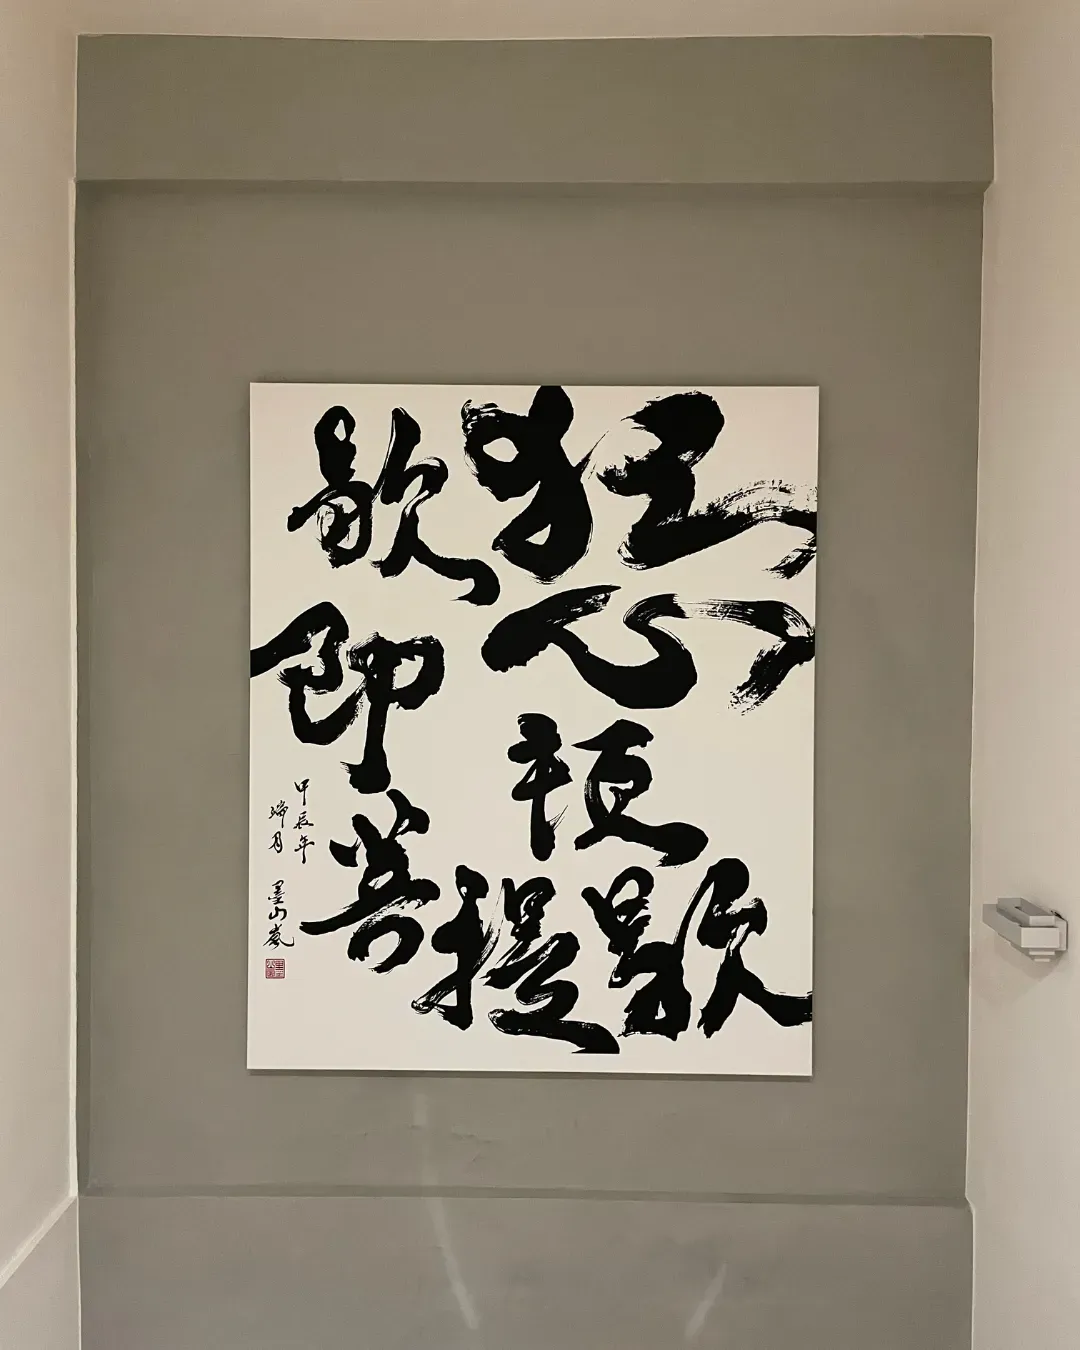 狂心頓歇
歇即菩提
甲辰年
端月 墨山嵐